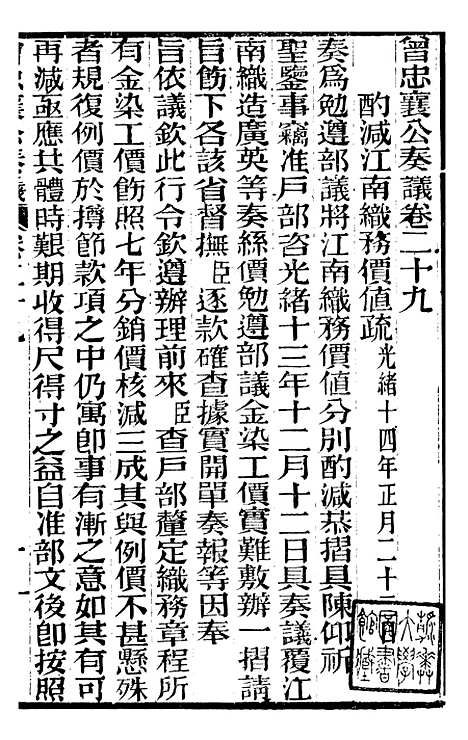 曾忠襄公奏議卷二十九
酌減江南織務價値疏光緒十四年正月二十二
奏爲勉遵部議將江南織務價値分別酌減恭摺具陳仰祈
聖鑒事竊准戶部咨光緒十三年十二月十二日具奏議覆江
南織造廣英等奏絲價勉遵部議金染工價實難敷辦一摺請
旨飭下各該省督撫臣逐款確查據實開單奏報等因奉
旨依議欽此行令欽遵辦理前來臣查戶部釐定織務章程所
有金染工價飭照七年分銷價核減三成其與例價不甚懸殊
者規復例價於撙節款項之中仍寓卽事有漸之意如其有可
再減亟應共體時艱期收得尺得寸之益自准部文後卽按照
燕京大學圖書館藏